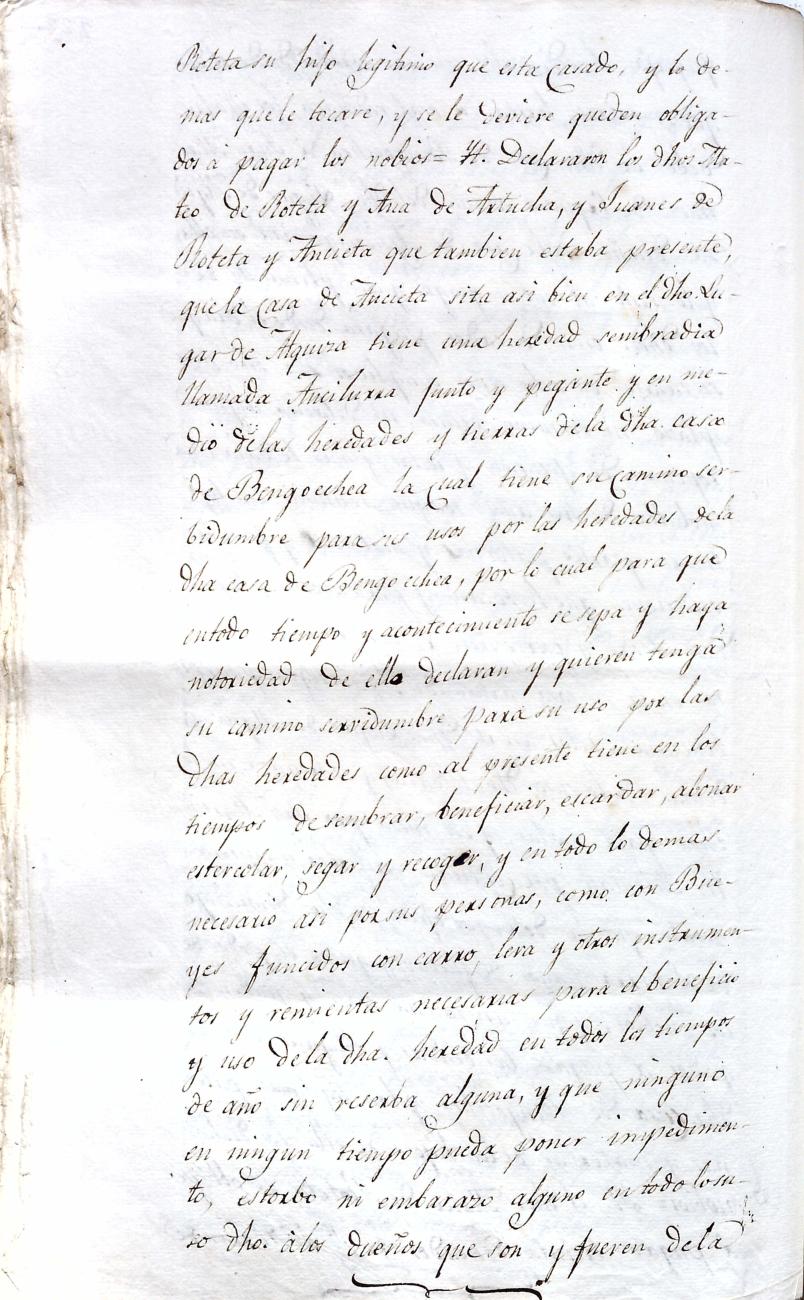 Roteta su hijo legitimo que esta casado, y lo de-
mas que le tocare, y se le deviere queden obliga-
dos à pagar los nobios= Yt. Declararon los dhos Ma-
teo de Roteta y Ana de Artucha, y Juanes de
Roteta y Ancieta que tambien estaba presente,
que la casa de Ancieta sita asi bien en el dho. Lu-
gar de Alquiza tiene una heredad sembradia
llamada Ancilurra junto y pegante y en me-
dio de las heredades y tierras de la dha. casa
de Bengoechea la cual tiene su camino ser-
bidumbre para sus usos por las heredades de la
dha casa de Bengoechea, por lo cual para que
en todo tiempo y acontecimiento se sepa y haya
notoriedad de ello declaran y quieren tenga
su camino servidumbre para su uso por las
dhas heredades como al presente tiene en los
tiempos de sembrar, beneficiar, escardar, abonar
estercolar, segar y recoger, y en todo lo demas
necesario asi por sus personas, como con Bue-
yes juncidos con carro, lera y otros instrumen-
tos y remientas necesarias para el beneficio
y uso de la dha. heredad en todos los tiempos
de año sin reserba alguna, y que ninguno
en ningun tiempo pueda poner impedimen-
to, estorbo ni embarazo alguno en todo lo su-
so dho. à los dueños que son y fueren de la